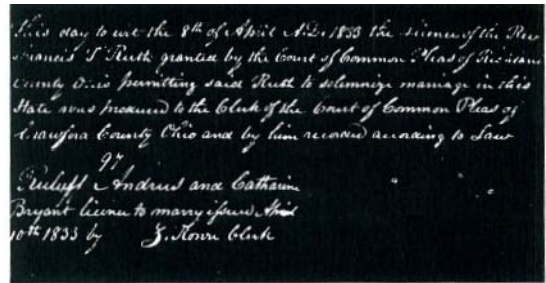 This day to wit the 8th of April A.D. 1833 the license of the Rev
Francis I Ruth granted by the Court of Common Pleas of Richland
County Ohio permitting said Ruth to solemnize marriage in this
State was produced to the Clerk of the Court of Common Pleas of
Crawford County Ohio and by him recorded according to Law
97
Andrus and Catharine
Bryant licence to marry issued April
10th 1833 by Z. Rowse Clerk